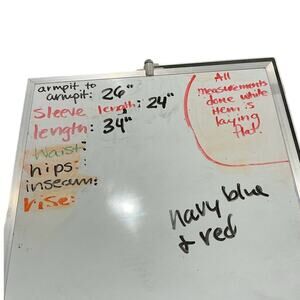 armpit to
armpit: 26"
Sleeve length: 24"
length: 34"
waist:
hips:
inseam:
rise:
All
measurements
done while
item is
laying
flat.
navy blue
& red